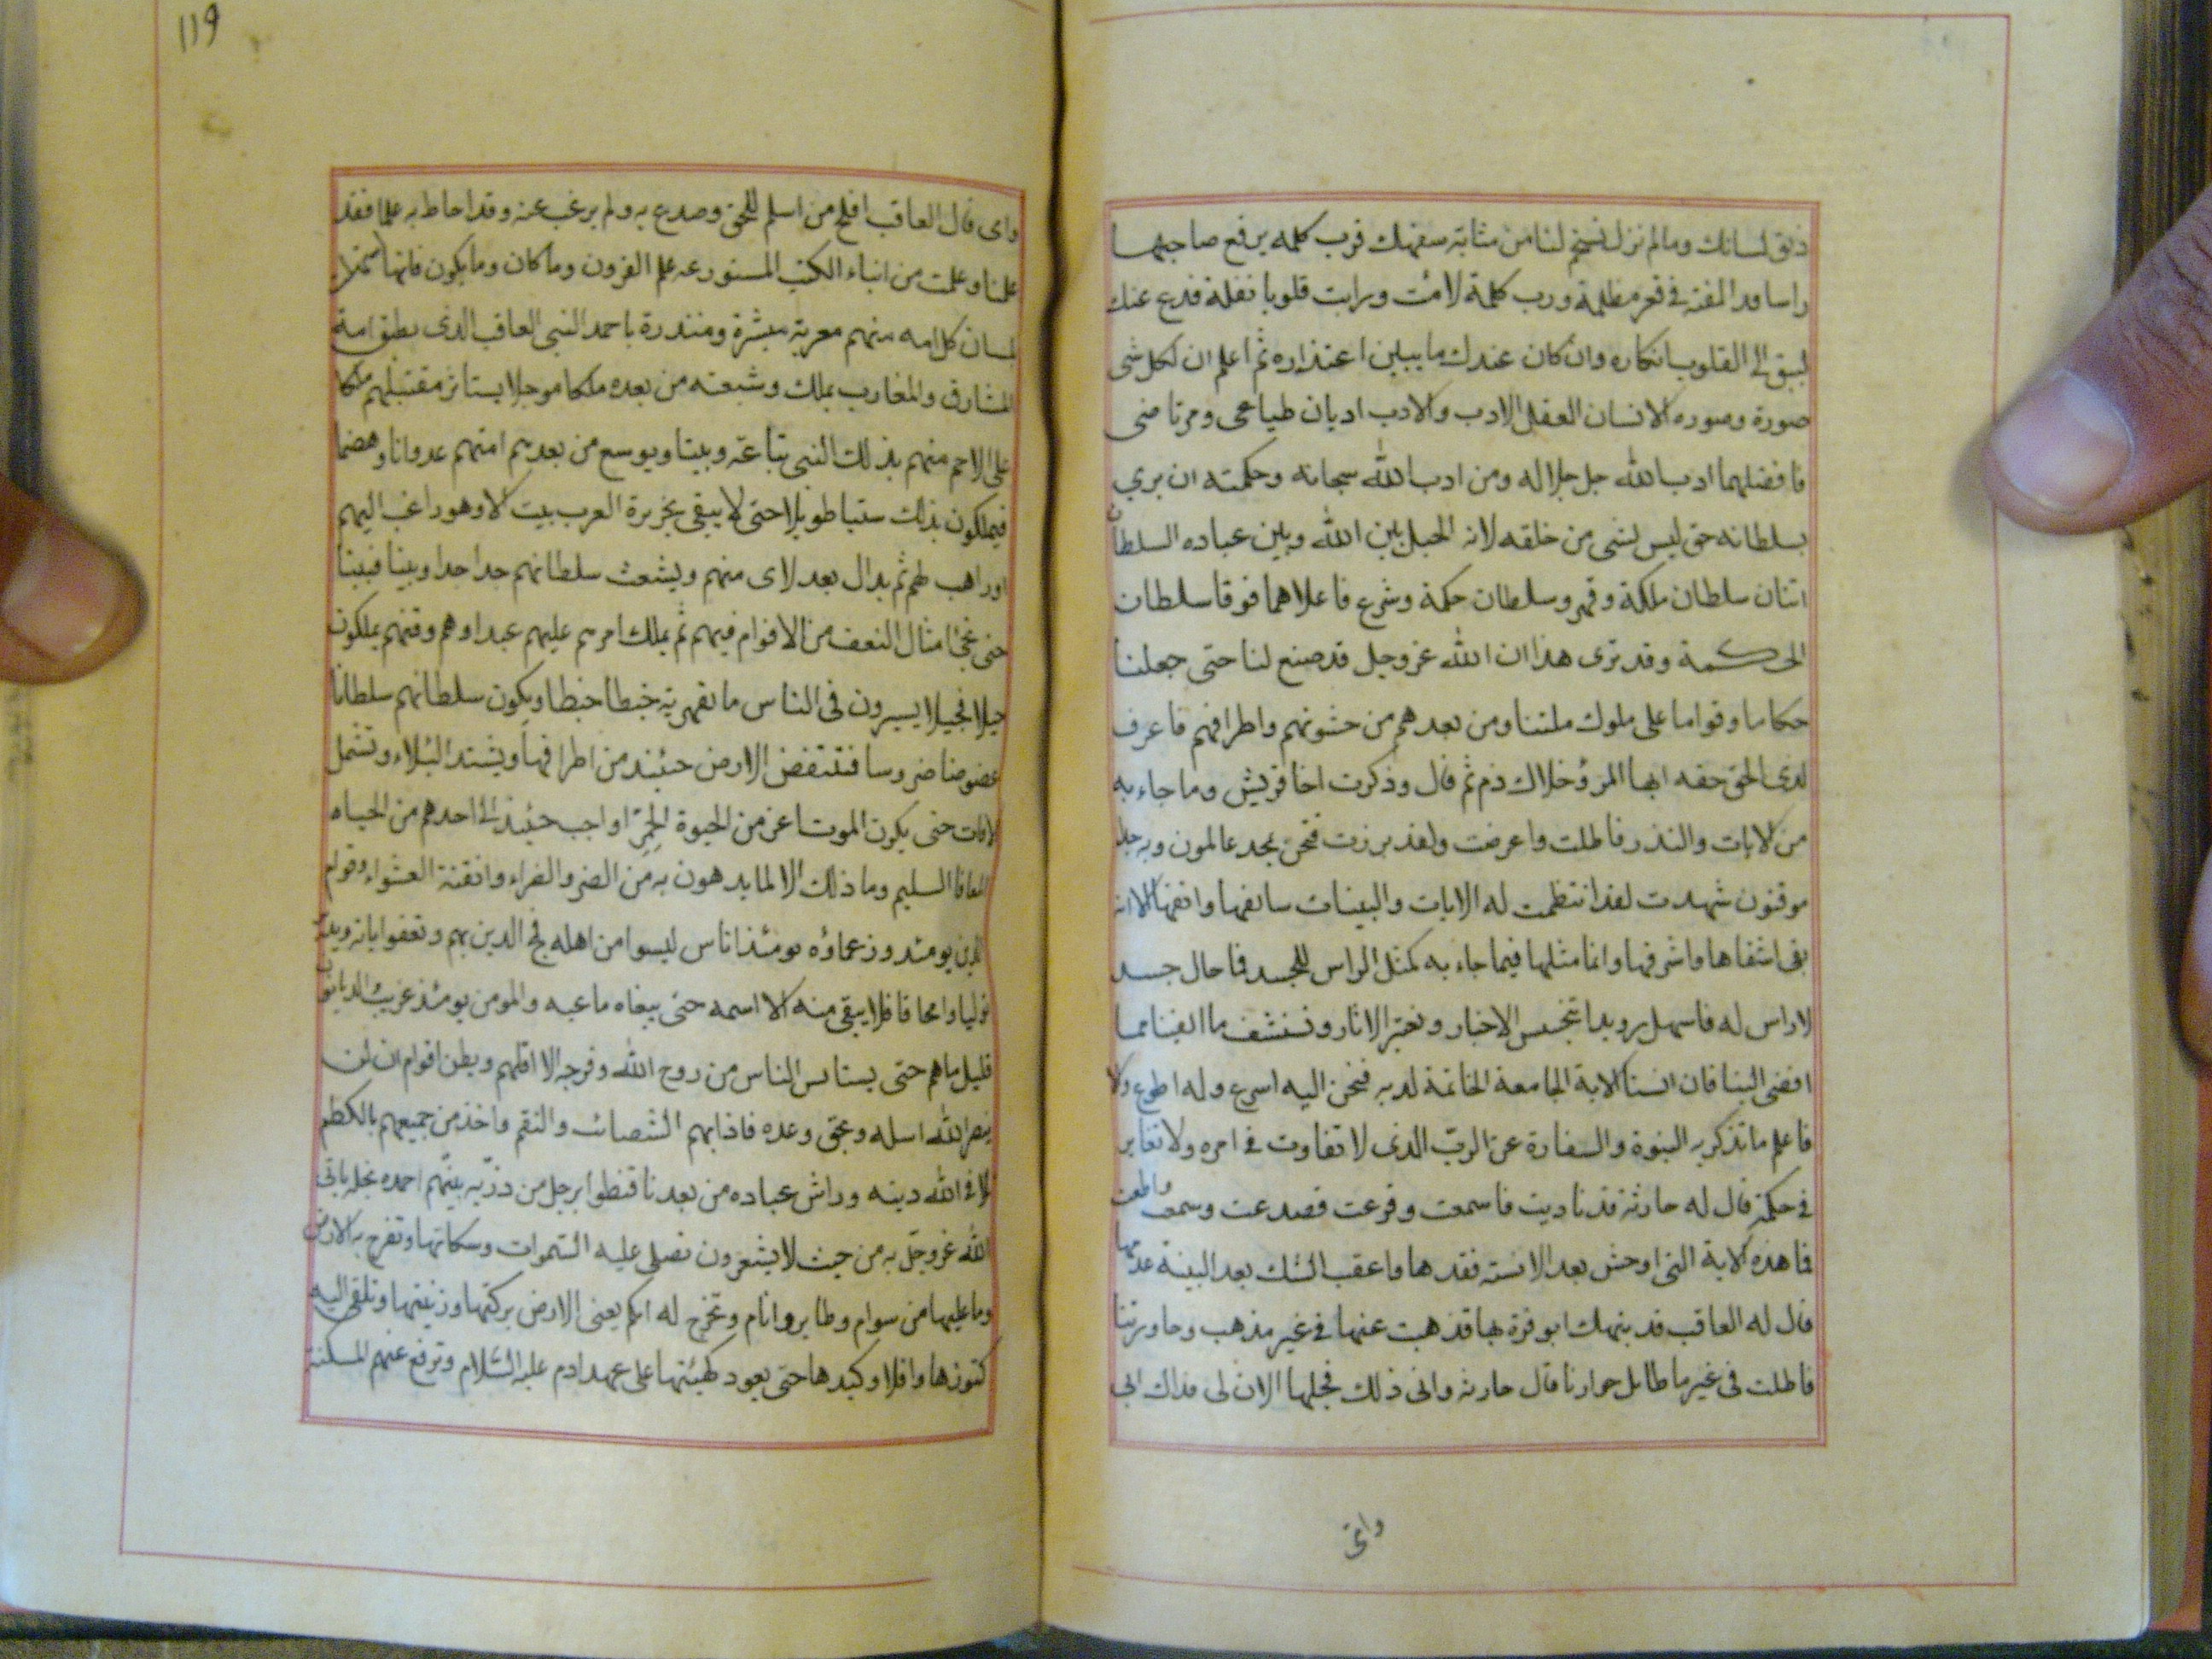 ذلق لسانك وما لم نزل نستخم لنا من مثابة سفهك فرب كلمه يرفع صاحبها
راسا قد القته في قعر مظلمة ورب كلمة لامت ورابت قلوبا نغلة فدع عنك
يسبق الى القلوب انكاره وان كان عندك ما يبين اعتذاره ثم اعلم ان لكل شى
صورة وصوره الانسان العقل الادب والادب اديان طباعى ومرتاضى
فافضلهما ادب الله جل جلاله ومن ادب الله سبحانه وحكمته ان يرى
بسلطانه حق ليس لشى من خلقه لانه الحبل بين الله وبين عباده السلطان
اثنان سلطان ملكة وقهر وسلطان حكمة وشرع فاعلاهما فوقا سلطان
الحكمة وقد ترى هذا ان الله عز وجل قد صنع لنا حتى جعلنا
حكاما وقواما على ملوك ملتنا ومن بعدهم من حشوتهم واطرافهم فاعرف
لذى الحق حقه ايها المرؤ خلاك ذم ثم قال وذكرت اخا قريش وما جاء به
من الايات والنذر فاطلت واعرضت ولقد برزت فنحن بمحمد عالمون وبه جدا
موقنون شهدت لقد انتظمت له الايات والبينات سالفها وانفها الا اية
بقى اشفاها واشرفها وانما مثلها فيما جاء به كمثل الراس للجسد فما حال جسد
لا راس له فامهل رويدا نتجسس الاخبار ونعتبر الاثار ونستشف ما الفينا مما
افضى الينا فان انسنا الاية الجامعة الخاتمة لديه فنحن اليه اسرع وله اطوع والا
فاعلم ما تذكر به النبوة والسفارة عن الرب الذى لا تفاوت فى امره ولا تغاير
فى حكمه قال له حارثة قد ناديت فاسمعت وقرعت فصدعت وسمعت واطعت
فما هذه الاية التى اوحش بعد الانسة فقدها واعقب الشك بعد البينة عدمها
قال له العاقب قد نبهك ابو قرة لها فذهبت عنها فى غير مذهب وحاورتنا
فاطلت فى غير ما طائل حوارنا قال حارثة وانى ذلك فجلها الان لى فداك ابى
وامى
119
وامى قال العاقب افلح من اسلم للحق وصدع به ولم يرغب عنه وقد احاط به علما فقد
علمنا وعلمت من انباء الكتب المستودعه علم القرون وما كان وما يكون فانها استهلت
بلسان كل امه منهم معربة مبشرة ومنذرة باحمد النبى العاقب الذى يطبق امته
المشارق والمغارب يملك وشيعته من بعده ملكا موجلا يستاثر مقتبلهم ملكا
على الاحم منهم بذلك النبى تباعة وبيتا ويوسع من بعدهم امتهم عدوانا وهضما
فيملكون بذلك سبتا طويلا حتى لا يبقى بجزيرة العرب بيت الا وهو راغب اليهم
او راهب لهم ثم يدال بعد لاى منهم ويشعث سلطانهم حدا حدا وبيتا فبيتا
حتى تجئ امثال النغف من الاقوام فيهم ثم يملك امرهم عليهم عبداوهم وقنهم يملكون
جيلا فجيلا يسيرون فى الناس بالقعسرية خبطا خبطا ويكون سلطانهم سلطانا
عضوضا ضروسا فتنتقض الارض حينئذ من اطرافها ويشتد البلاء وتشتمل
الافات حتى يكون الموت اعز من الحيوة الحمر او احب حينئذ الى احدهم من الحياه
المعافا السليم وما ذلك الا لما يدهون به من الضر والضراء والفتنة العشواء وقوام
الدين يومئذ وزعماؤه يومئذ اناس ليسوا من اهله فيمج الدين بهم وتعفوا اياته ويدبر
توليا وامحاقا فلا يبقى منه الا اسمه حتى ينعاه ناعيه والمومن يومئذ غريب والديانون
قليل ما هم حتى يستايس الناس من روح الله وفرجه الا اقلهم ويظن اقوام ان لن
ينصر الله رسله ويحق وعده فاذا بهم الشصائب والنقم واخذ من جميعهم بالكظم
تلافى الله دينه وراش عباده من بعد ما قنطوا برجل من ذرية نبيهم احمد ونجله ياتى
الله عز وجل به من حيث لا يشعرون تصلى عليه السموات وسكانها وتفرح به الارض
وما عليها من سوام وطاير وانام وتخرج له امكم يعنى الارض بركتها وزينتها وتلقى اليه
كنوزها وافلاذ كبدها حتى يعود كهيئتها على عهد ادم عليه السلام وترفع عنهم المسكنة